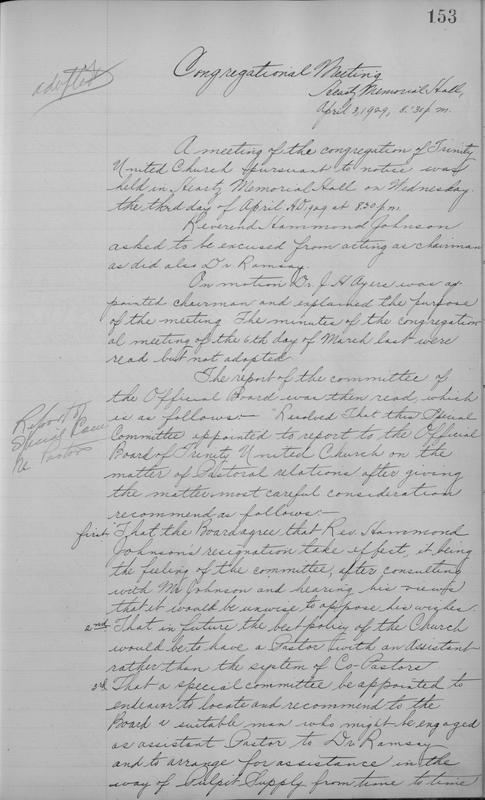 153
adopted
Congregational Meeting
Hearts Memorial Hall,
April 3, 1929, 8.30 p.m.
A meeting of the congregation of Trinity
United Church pursuant to notice was
held in Hearts Memorial Hall on Wednesday
the third day of April AD 1929 at 8.30 p.m.
Reverend Hammond Johnson
asked to be excused from acting as chairman
as did also Dr Ramsay.
On motion Dr. J H Ayers was ap
pointed chairman and explained the purpose
of the meeting The minutes of the congregation
al meeting of the 6th day of March last were
read but not adopted
The report of the committee of
the Official Board was then read, which
Report of
Special Com
Re Pastor
is as follows:- "Resolved That this Special
Committee appointed to report to the Official
Board of Trinity United Church on the
matter of Pastoral relations after giving
the matter most careful consideration
recommend as follows:-
first That the Board agree that Rev. Hammond
Johnson's resignation take effect, it being
the feeling of the committee, after consulting
with Mr Johnson and hearing his views
that it would be unwise to oppose his wishes.
2nd That in future the best policy of the Church
would be to have a Pastor with an Assistant
rather than the system of Co-Pastors
3rd That a special committee be appointed to
endeavor to locate and recommend to the
Board a suitable man who might be engaged
as assistant Pastor to Dr Ramsay
and to arrange for assistance in the
way of Pulpit Supply from time to time